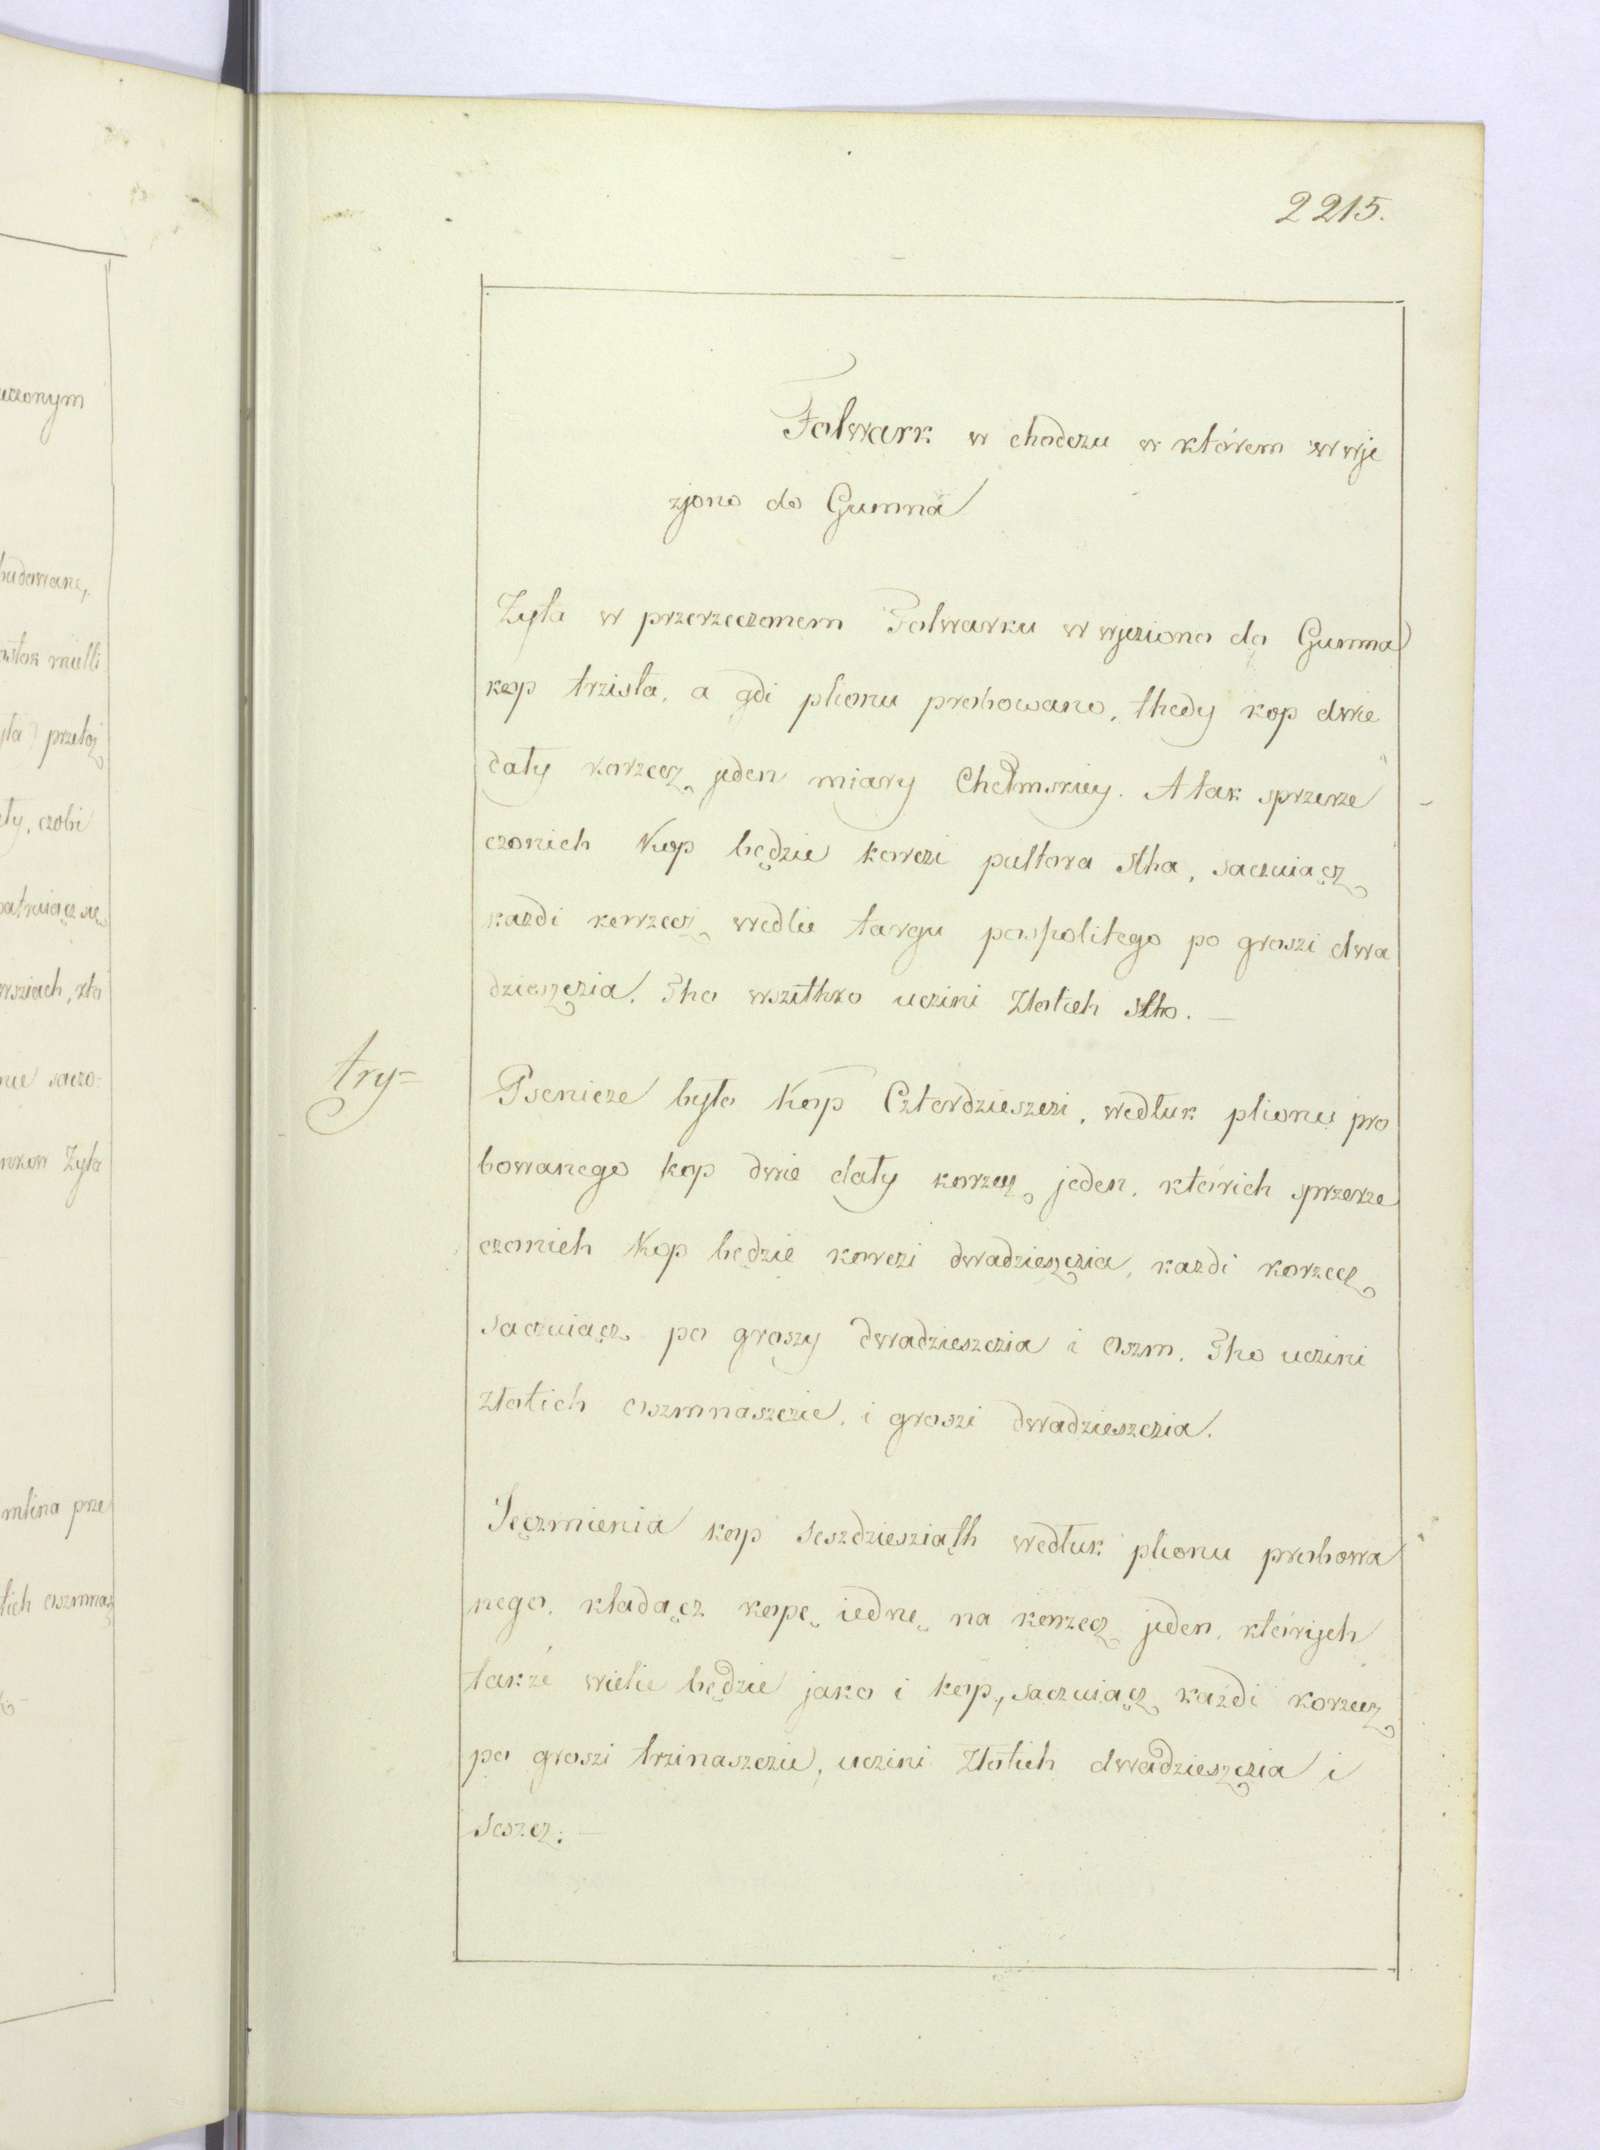 2215.
Folwark w chodczu w którem w wje
zjono do Gumna
Zyta w przerzeczonem Folwarku w wjeziono do Gumna
kop trzista, a gdi plionu probowano, thedy kop dwie
dały korzecz jeden miary Chełmskiey. A tak sprzerze
czonich Kop będzie korczi pultora stha, saczuiącz
kazdi korzecz wedlie targu pospolitego po groszi dwa
dzieszczia. Tho wszithko uczini Złotich stho. —
try=
Psenicze było Kop Czterdzieszczi, wedłuk plionu pro
bowanego kop dwie dały korzecz jeden, którich sprzerze
czonich Kop będzie korczi dwadzieszczia, kazdi korzecz
saczuiącz po groszy dwadzieszczia i Oszm. Tho uczini
złotich oszmnaszczie, i groszi dwadzieszczia.
Jęczmienia kop seszdziesziąth wedłuk plionu probowa
nego, kładącz kopę iednę na korzecz jeden, którijch
także wielie będzie jako i kop, saczuiącz każdi korzecz
po groszi trzinaszczie, uczini Złotich dwadzieszczia i
seszcz. —
uczonym
budowane,
przełoż
ety, czobi
patruiącz się
wsziach, zło
nie saczo=
Zyta
młina prze
tich oszmnaś